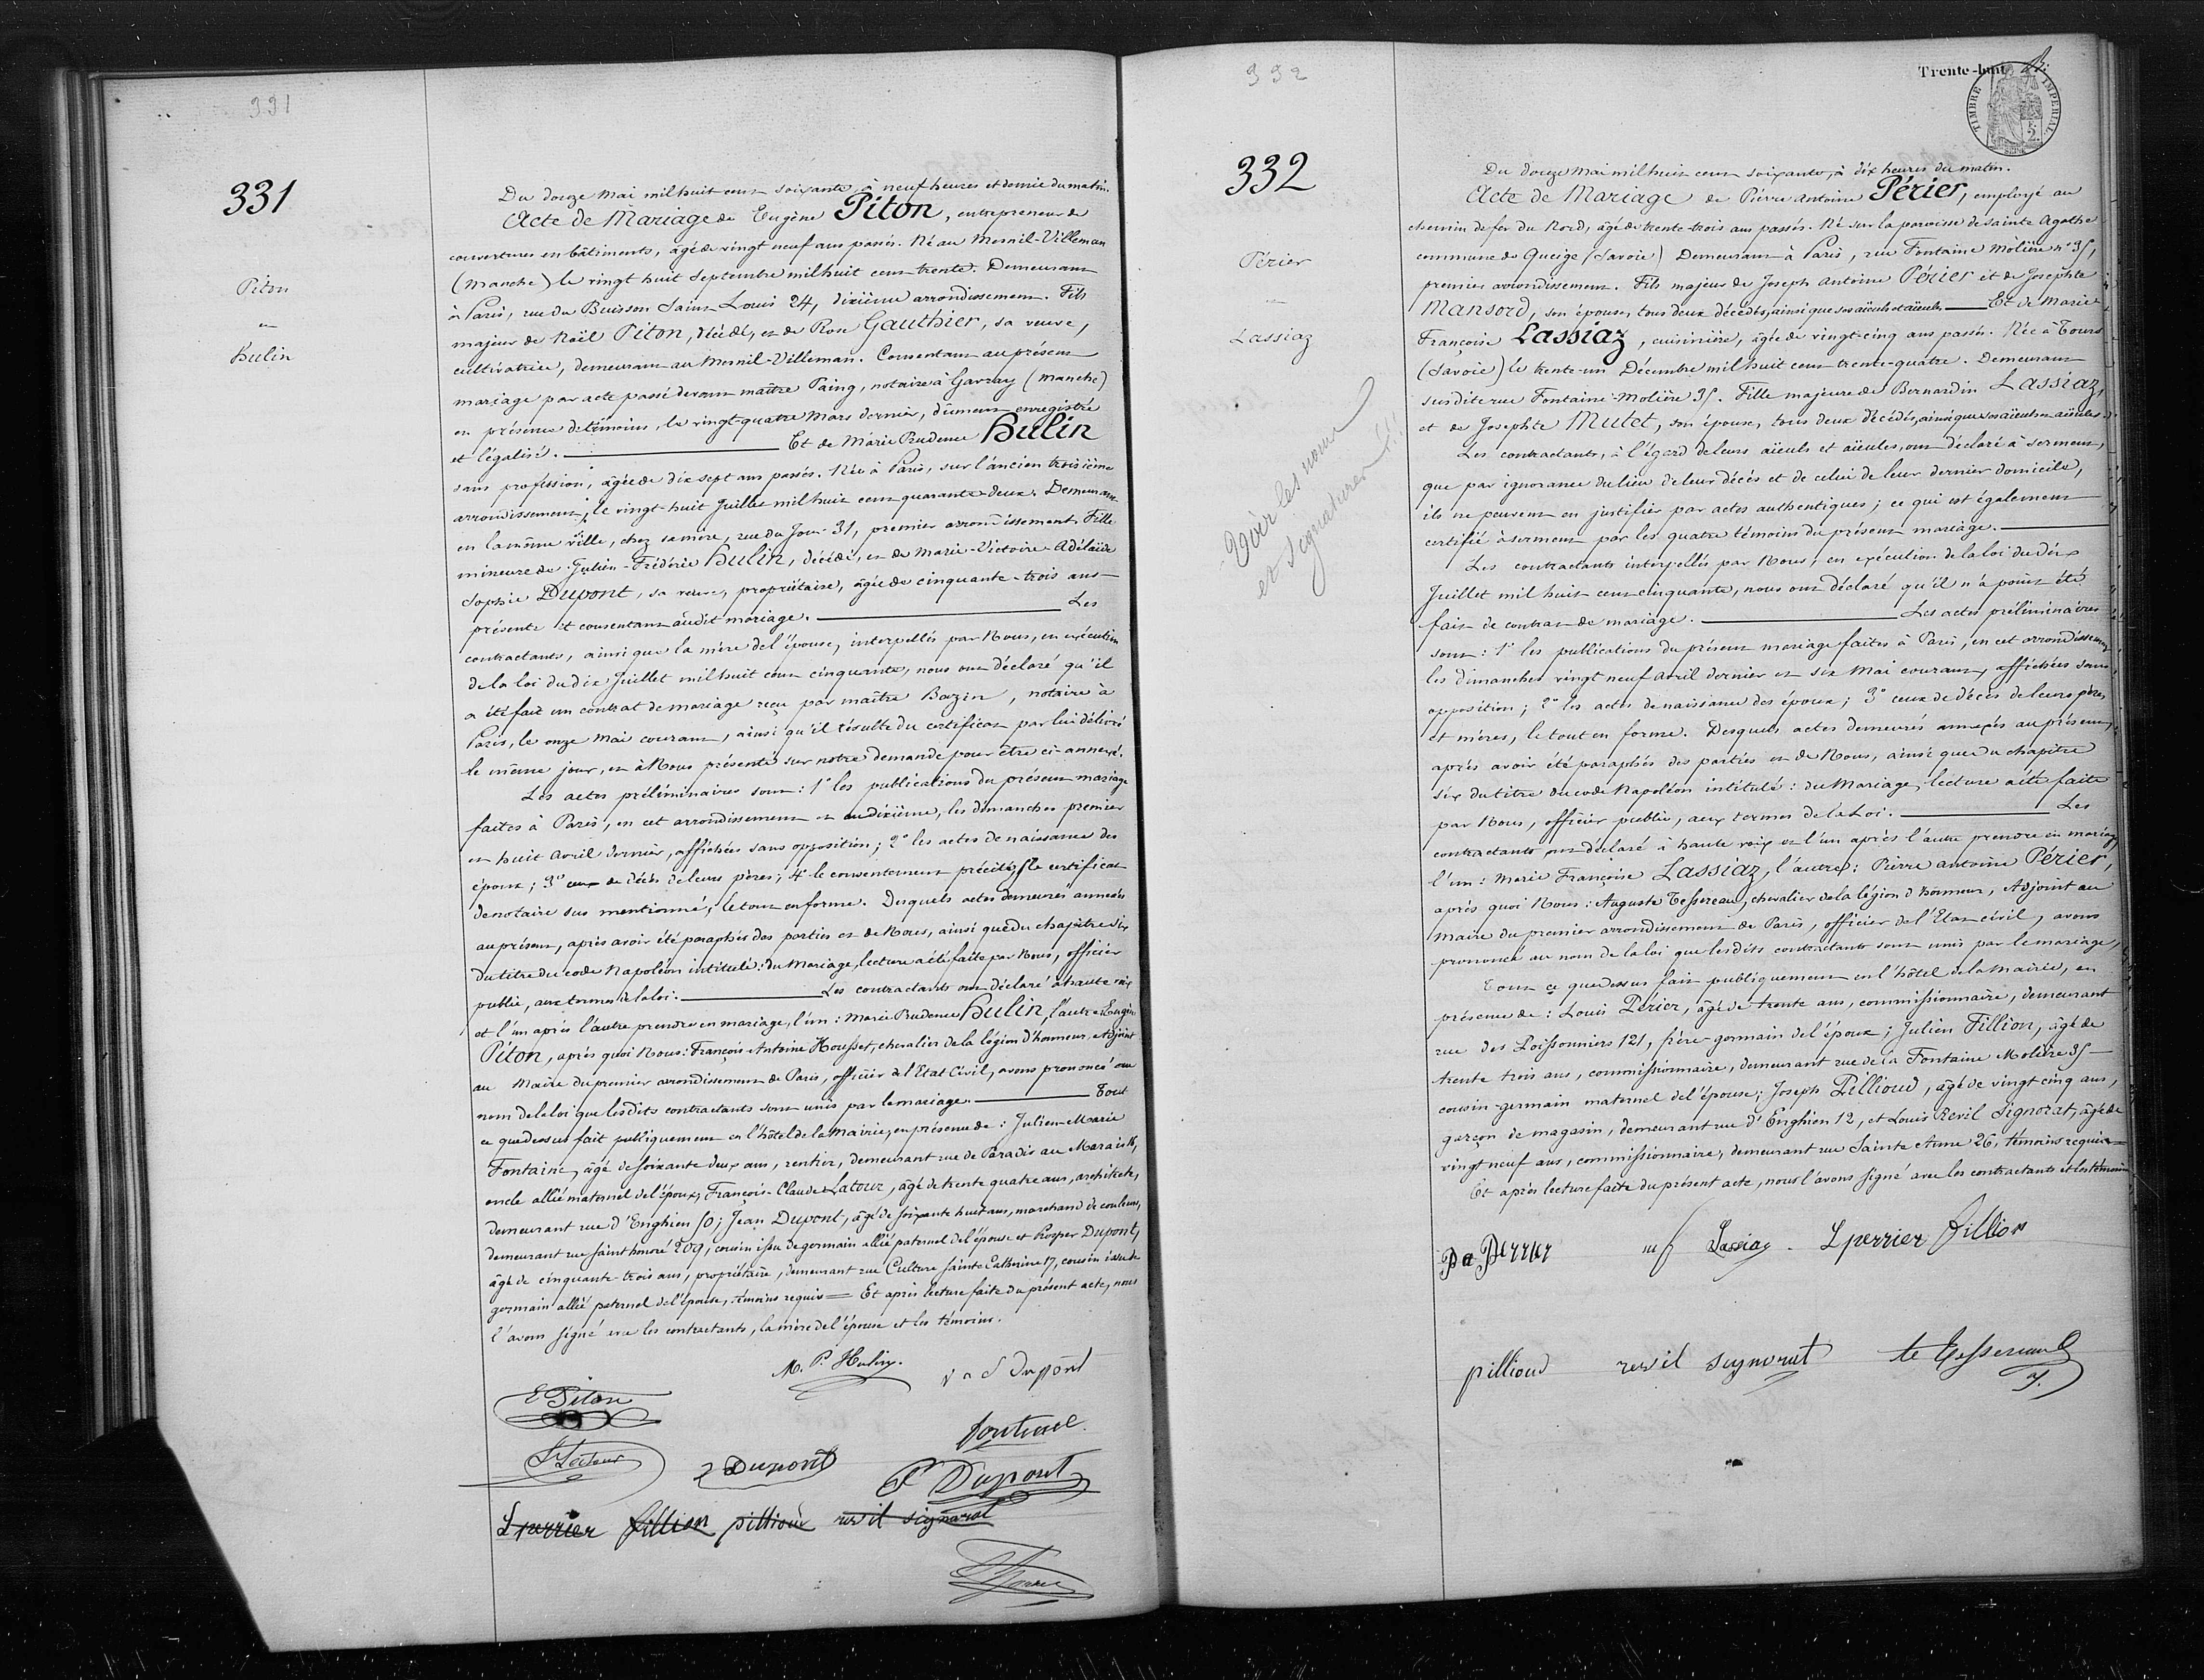 331
331
Piton
et
Hulin
Du douze Mai mil huit cent soixante, à neuf heures et demie du matin.
Acte de Mariage de Eugène Piton, entrepreneur de
couvertures en bâtiments, âgé de vingt neuf ans passés. Né au Mesnil-Villeman
(Manche) le vingt huit Septembre mil huit cent trente. Demeurant
à Paris, rue du Buisson Saint Louis 24, dixième arrondissement. Fils
majeur de Noël Piton, décédé, et de Rose Gauthier, sa veuve,
cultivatrice, demeurant au Mesnil-Villeman. Consentant au présent
mariage par acte passé devant maître Paing, notaire à Gavray (Manche)
en présence de témoins, le vingt-quatre Mars dernier, dûment enregistré
et légalisé. Et de Marie Prudence Hulin
sans profession, âgée de dix sept ans passés. Née à Paris, sur l'ancien troisième
arrondissement, le vingt-huit Juillet mil huit cent quarante deux. Demeurant
en la même ville, chez sa mère, rue du Jour 31, premier arrondissement. Fille
mineure de Julien-Frédéric Hulin, décédé, et de Marie-Victoire-Adélaïde
Sophie Dupont, sa veuve, propriétaire, âgée de cinquante-trois ans
présente et consentant audit mariage. Les
contractants, ainsi que la mère de l'épouse, interpellés par Nous, en exécution
de la loi du dix Juillet mil huit cent cinquante, nous ont déclaré qu'il
a été fait un contrat de mariage reçu par maître Bazin, notaire à
Paris, le onze Mai courant, ainsi qu'il résulte du certificat par lui délivré
le même jour, et à Nous présenté sur notre demande pour être ci-annexé.
Les actes préliminaires sont : 1° les publications du présent mariage
faites à Paris, en cet arrondissement et au dixième, les dimanches premier
et huit Avril dernier, affichées sans opposition; 2° les actes de naissance des
époux; 3° ceux de décès de leurs pères; 4° le consentement précité; le certificat
de notaire sus mentionné; le tout en forme. Desquels actes demeurés annexés
au présent, après avoir été paraphés des parties et de Nous, ainsi que du chapitre six
du titre du code Napoléon intitulé : du Mariage, lecture a été faite par Nous, officier
public, aux termes de la loi. Les contractants ont déclaré à haute voix
et l'un après l'autre prendre en mariage, l'un : Marie Prudence Hulin, l'autre : Eugène
Piton, après quoi Nous : François Antoine Housset, chevalier de la légion d'honneur, Adjoint
au Maire du premier arrondissement de Paris, officier de l'Etat Civil, avons prononcé au
nom de la loi que lesdits contractants sont unis par le mariage. Tout
ce que dessus fait publiquement en l'hôtel de la Mairie, en présence de : Julien Marie
Fontaine, âgé de soixante deux ans, rentier, demeurant rue de Paradis au Marais 16,
oncle allié maternel de l'époux; François-Claude Latour, âgé de trente quatre ans, architecte,
demeurant rue d'Enghien 50; Jean Dupont, âgé de soixante huit ans, marchand de couleurs,
demeurant rue Saint honoré 209, cousin issu de germain allié paternel de l'épouse et Prosper Dupont,
âgé de cinquante-trois ans, propriétaire, demeurant rue Culture Sainte Catherine 17, cousin issu de
germain allié paternel de l'épouse, témoins requis = Et après lecture faite du présent acte, nous
l'avons signé avec les contractants, la mère de l'épouse et les témoins.
M. P. Hulin.
E Piton
Dupont
J Dupont
P Dupont
L perrier fillion pillioud revil signorat
332
Trente-huit
TIMBRE IMPÉRIAL
332
Périer
et
Lassiaz
Voir les noms
et Signatures !!!
Du douze Mai mil huit cent soixante, à dix heures du matin.
Acte de Mariage de Pierre Antoine Périer, employé au
chemin de fer du Nord, âgé de trente-trois ans passés. Né sur la paroisse de Sainte Agathe
commune de Queige (Savoie) Demeurant à Paris, rue Fontaine Molière n° 35,
premier arrondissement. Fils majeur de Joseph Antoine Périer et de Josephte
Mansord, son épouse, tous deux décédés, ainsi que ses aïeuls et aïeules. Et de Marie
Françoise Lassiaz, cuisinière, âgée de vingt-cinq ans passés. Née à Tours
(Savoie) le trente-un Décembre mil huit cent trente-quatre. Demeurant
susdite rue Fontaine-Molière 35. Fille majeure de Bernardin Lassiaz,
et de Josephte Mutet, son épouse, tous deux décédés, ainsi que ses aïeuls et aïeules.
Les contractants, à l'égard de leurs aïeuls et aïeules, ont déclaré à serment,
que par ignorance du lieu de leur décès et de celui de leur dernier domicile,
ils ne peuvent en justifier par actes authentiques; ce qui est également
certifié à serment par les quatre témoins du présent mariage.
Les contractants interpellés par Nous, en exécution de la loi du dix
Juillet mil huit cent cinquante, nous ont déclaré qu'il n'a point été
fait de contrat de mariage. Les actes préliminaires
sont : 1° les publications du présent mariage faites à Paris, en cet arrondissement
les dimanches vingt neuf Avril dernier et six Mai courant, affichées sans
opposition; 2° les actes de naissance des époux; 3° ceux de décès de leurs pères
et mères, le tout en forme. Desquels actes demeurés annexés au présent,
après avoir été paraphés des parties et de Nous, ainsi que du chapitre
six du titre du code Napoléon intitulé : du Mariage, lecture a été faite
par Nous, officier public, aux termes de la Loi. Les
contractants ont déclaré à haute voix et l'un après l'autre prendre en mariage
l'un : Marie Françoise Lassiaz, l'autre : Pierre Antoine Périer,
après quoi Nous : Auguste Tessereau, chevalier de la légion d'honneur, Adjoint au
Maire du premier arrondissement de Paris, officier de l'Etat civil, avons
prononcé au nom de la loi que lesdits contractants sont unis par le mariage,
Tout ce que dessus fait publiquement en l'hôtel de la Mairie, en
présence de : Louis Périer, âgé de trente ans, commissionnaire, demeurant
rue des Poissonniers 121, frère-germain de l'époux; Julien Fillion, âgé de
trente trois ans, commissionnaire, demeurant rue de la Fontaine Molière 35
cousin-germain maternel de l'épouse; Joseph Pillioud, âgé de vingt cinq ans,
garçon de magasin, demeurant rue d'Enghien 12, et Louis Revil Signorat, âgé de
vingt neuf ans, commissionnaire, demeurant rue Sainte Anne 26, témoins requis =
Et après lecture faite du présent acte, nous l'avons signé avec les contractants et les témoins
Pa Perrier mf Lassiaz. L perrier fillion
pillioud revil signorat Te Tessereau